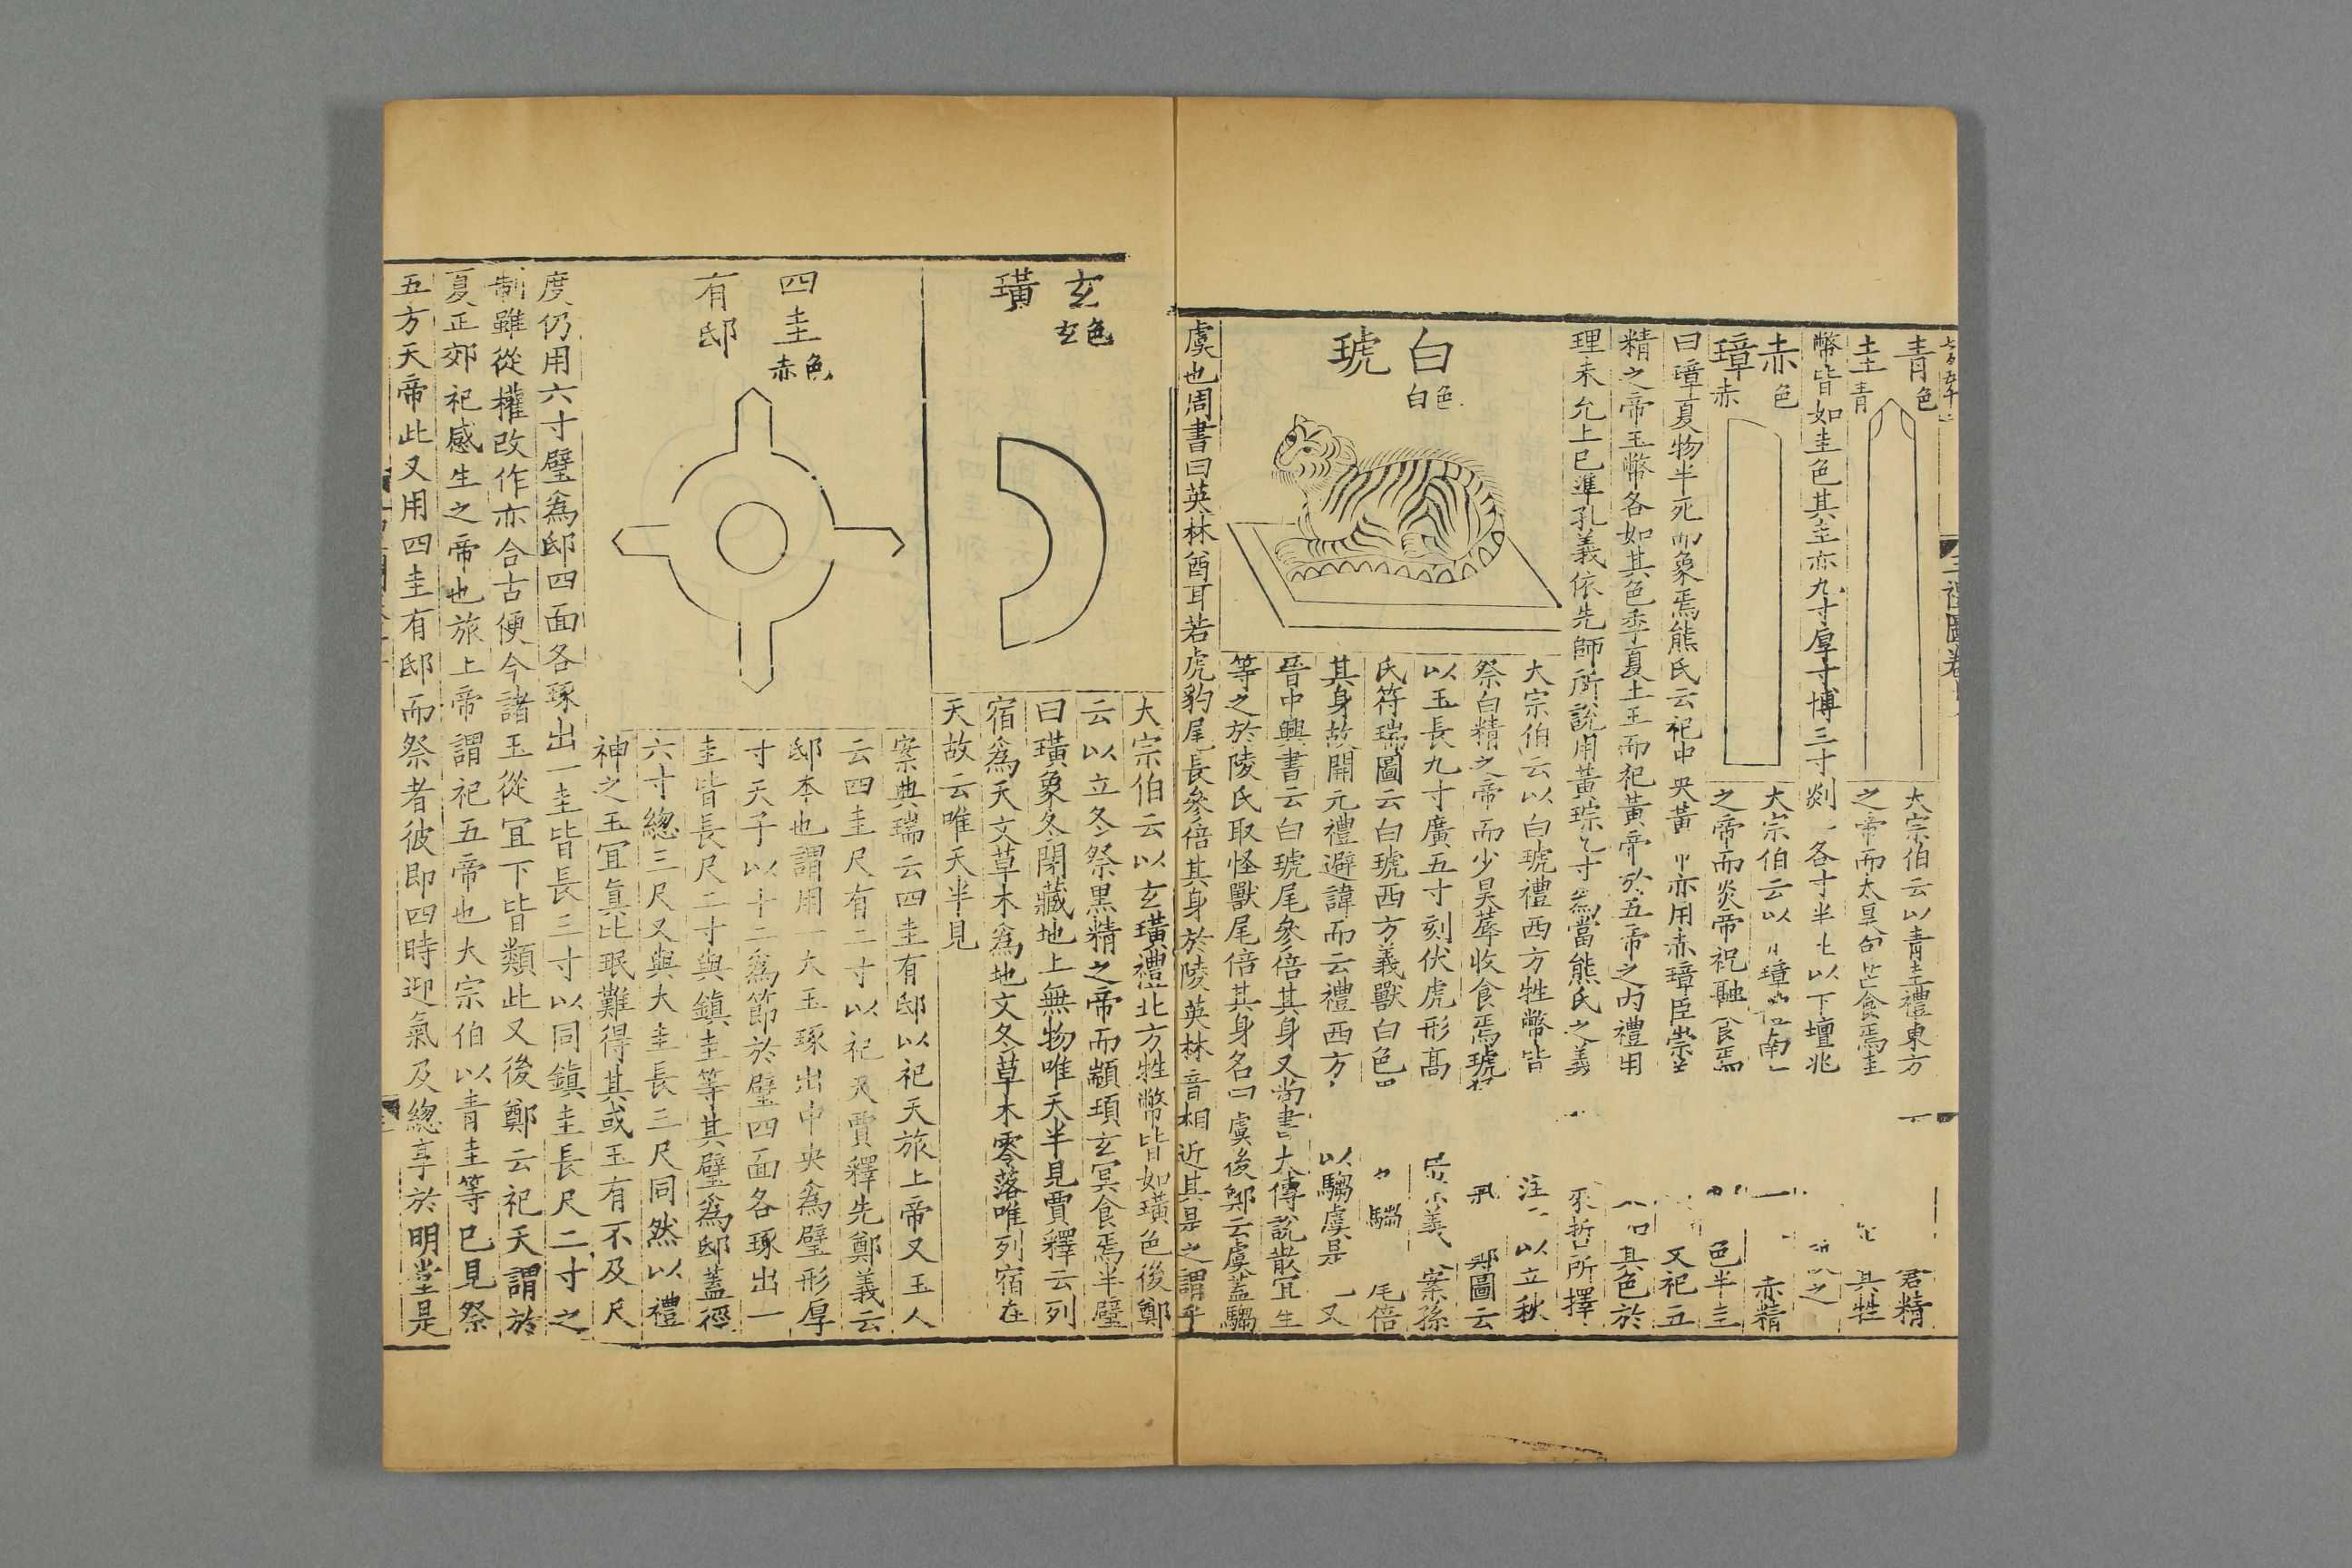 青色
圭青
大宗伯云以青圭禮東方 君精
之帝而太昊句芒食焉圭 其牲
幣皆如圭色其圭亦九寸厚寸博三寸剡 各寸半 以下壇兆 之
赤色
璋赤
大宗伯云以 璋 南 赤精
之帝而炎帝祝融食焉 色半圭
曰璋夏物半死而象焉熊氏云祀中央黃 亦用赤璋臣崇 又祀五
精之帝玉幣各如其色季夏土王而祀黃帝於五帝之內禮用 其色於
理未允上已準孔義依先師所說用黃琮 寸 當熊氏之義 折 所擇
白白色
琥
大宗伯云以白琥禮西方牲幣皆 注 以立秋
祭白精之帝而少昊蓐收食焉琥 鄭圖云
以玉長九寸廣五寸刻伏虎形高 義 案孫
氏符瑞圖云白琥西方義獸白色 騶 尾倍
其身故開元禮避諱而云禮西方 以騶虞是 又
晉中興書云白琥尾參倍其身又尚書大傳說散宜生
等之於陵氏取怪獸尾倍其身名曰虞後鄭云虞蓋騶
虞也周書曰英林酋耳若虎豹尾長參倍其身於陵英林音相近其是之謂乎
玄玄色
璜
大宗伯云以玄璜禮北方牲幣皆如璜色後鄭
云以立冬祭黑精之帝而顓頊玄冥食焉半璧
曰璜象冬閉藏地上無物唯天半見賈釋云列
宿爲天文草木爲地文冬草木零落唯列宿在
天故云唯天半見
四圭赤色
有邸
案典瑞云四圭有邸以祀天旅上帝又玉人
云四圭尺有二寸以祀天賈釋先鄭義云
邸本也謂用一大玉琢出中央爲璧形厚
寸天子以十二爲節於璧四面各琢出一
圭皆長尺二寸與鎮圭等其璧爲邸蓋徑
六寸總三尺又與大圭長三尺同然以禮
神之玉宜眞比珉難得其或玉有不及尺
度仍用六寸璧爲邸四面各琢出一圭皆長三寸以同鎮圭長尺二寸之
制雖從權改作亦合古便今諸玉從宜下皆類此又後鄭云祀天謂於
夏正郊祀感生之帝也旅上帝謂祀五帝也大宗伯以青圭等已見祭
五方天帝此又用四圭有邸而祭者彼即四時迎氣及總享於明堂是